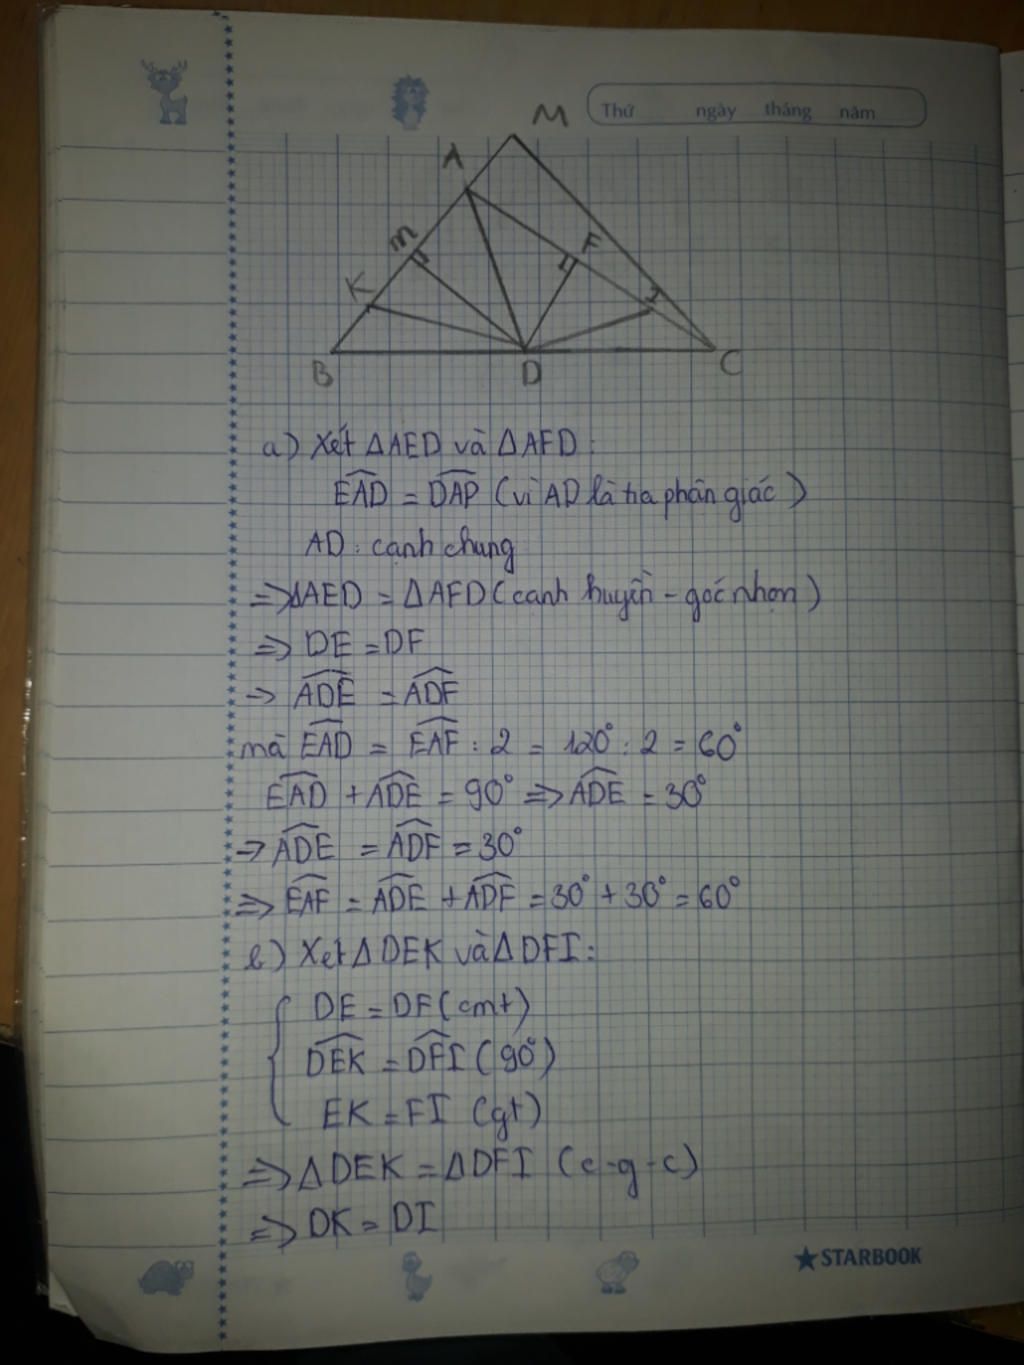 Thứ ngày tháng năm
M
A
m
F
K
I
B
D
C
a) Xét ΔAED và ΔAFD:
EAD = DAP (vì AD là tia phân giác)
AD: cạnh chung
=> ΔAED = ΔAFD (cạnh huyền - góc nhọn)
=> DE = DF
-> ADE = ADF
mà EAD = EAF : 2 = 120° : 2 = 60°
EAD + ADE = 90° => ADE = 30°
-> ADE = ADF = 30°
=> EAF = ADE + ADF = 30° + 30° = 60°
b) Xét ΔDEK và ΔDFI:
DE = DF (cmt)
DEK = DFI (90°)
EK = FI (gt)
=> ΔDEK = ΔDFI (c-g-c)
=> DK = DI
★STARBOOK